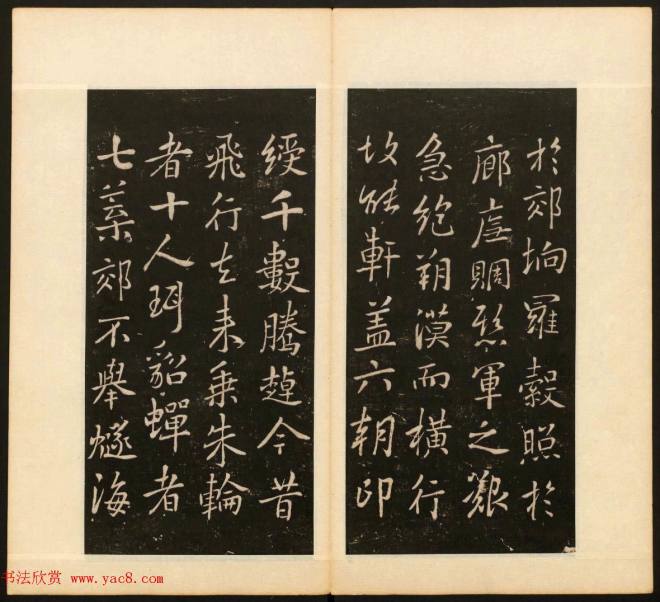 於郊坰羅縠照於
廊賙軍之艱
急絶朔漠而橫行
故能軒盖六朝印
綬千數騰趠今昔
飛行去来乗朱輪
者十人珥貂蟬者
七葉郊不舉燧海
书法欣赏 www.yac8.com